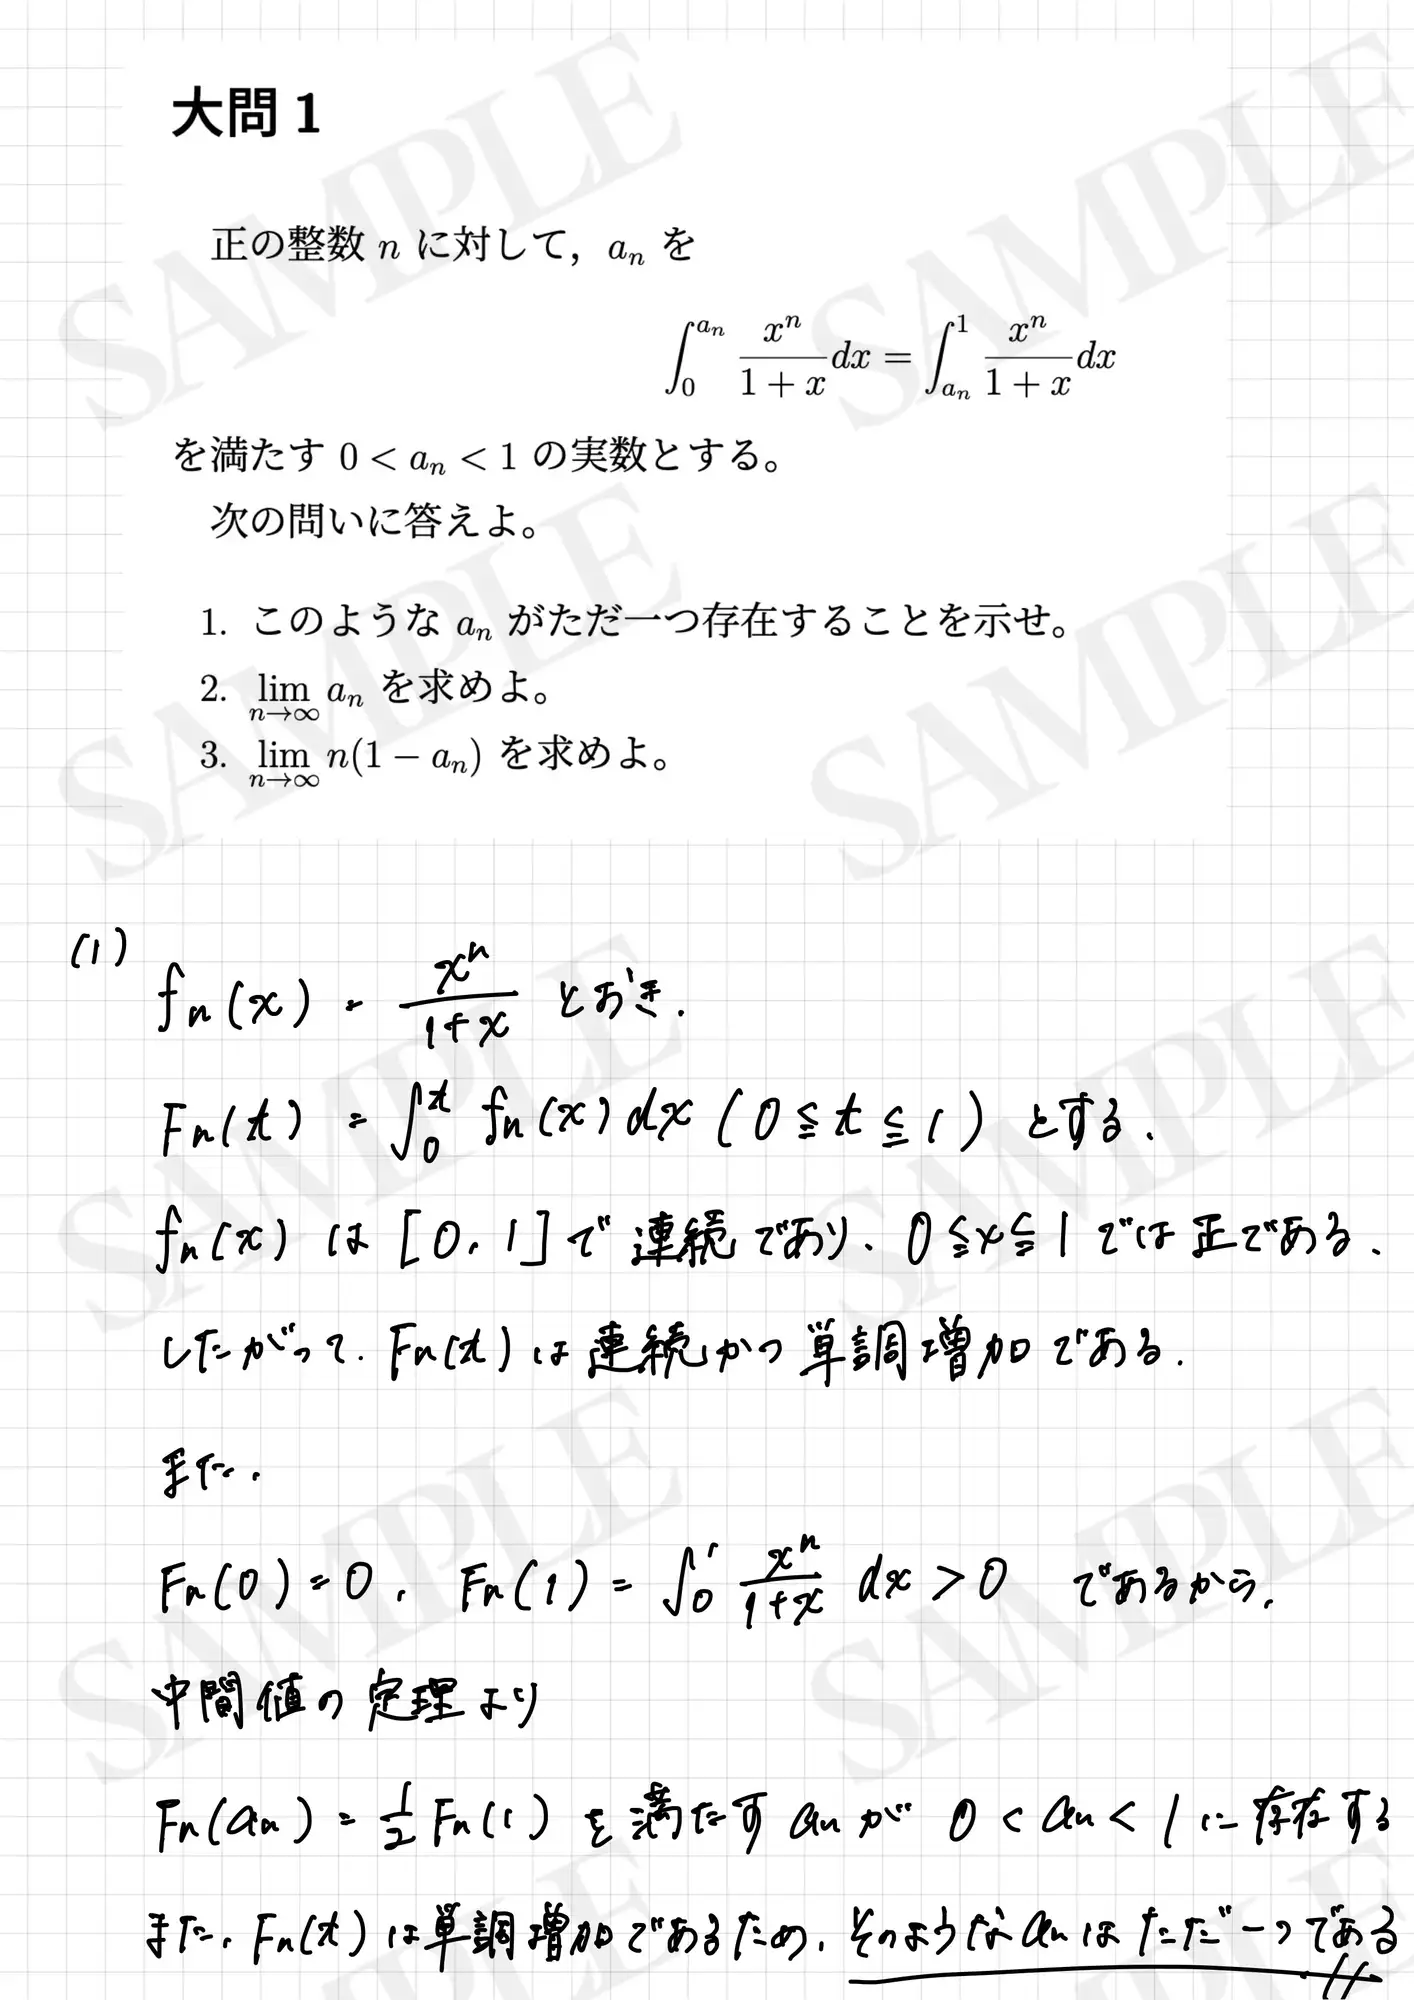 大問 1
正の整数 n に対して，aₙ を
∫₀^{aₙ} xⁿ/(1+x) dx = ∫_{aₙ}^1 xⁿ/(1+x) dx
を満たす 0 < aₙ < 1 の実数とする。
次の問いに答えよ。
1. このような aₙ がただ一つ存在することを示せ。
2. lim_{n→∞} aₙ を求めよ。
3. lim_{n→∞} n(1 − aₙ) を求めよ。
(1)
fₙ(x) = xⁿ/(1+x) とおき.
Fₙ(t) = ∫₀^t fₙ(x)dx (0≦t≦1) とする.
fₙ(x) は [0,1]で連続であり、0≦x≦1では正である、
したがって. Fₙ(t)は連続かつ単調増加である.
また、
Fₙ(0)=0, Fₙ(1)=∫₀^1 xⁿ/(1+x) dx > 0 であるから、
中間値の定理より
Fₙ(aₙ)=1/2 Fₙ(1) を満たす aₙが 0<aₙ<1に存在する
また、Fₙ(t)は単調増加であるため、そのようなaₙはただ一つである
SAMPLE
SAMPLE
SAMPLE
SAMPLE
SAMPLE
SAMPLE
SAMPLE
SAMPLE
SAMPLE
SAMPLE